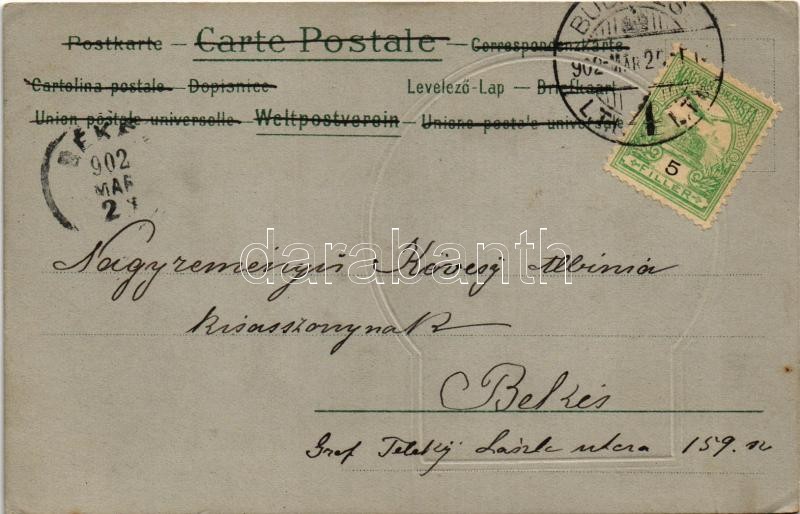 Postkarte — Carte Postale — Correspondenzkarte
Cartolina postale. — Dopisnice Levelező-Lap — Briefkaart
Union postale universelle. — Weltpostverein — Unione postale univer
BUD
902 MÁR 2
1
MAGYAR POSTA
5
FILLER
BÉK
902
MAR
2
Nagyreményű Kövesy Albinia
kisasszonynak
Békés
Gróf Teleky László utca 159. sz
darabanth